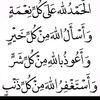 الْحَمْدُ لِلّٰهِ عَلَىٰ كُلِّ نِعْمَةٍ
وَأَسْأَلُ اللهَ مِنْ كُلِّ خَيْرٍ
وَأَعُوذُ بِاللهِ مِنْ كُلِّ شَرٍّ
وَأَسْتَغْفِرُ اللهَ مِنْ كُلِّ ذَنْبٍ